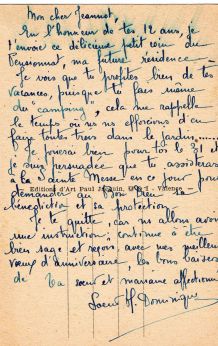 Mon cher Jeannot,
En l'honneur de tes 12 ans, je
t'envoie ce délicieux petit coin du
Pensionnat, ma future résidence —
Je vois que tu profites bien de tes
vacances, puisque tu fais même
du "camping", cela me rappelle
le temps où ns ns efforcions d'en
faire toutes trois dans le jardin......
Je penserai bien pour toi le 31 et
je suis persuadée que tu assisteras
à la Sainte Messe en ce jour pour
demander au Bon Dieu sa
Editions d'Art Paul Valence
bénédiction et sa protection.
Je te quitte, car ns allons avoir
une instruction. continue à être
bien sage et reçois avec mes meilleurs
vœux d'anniversaire, les bons baisers
de ta sœur et marraine affectionnée
Sœur M. Dominique